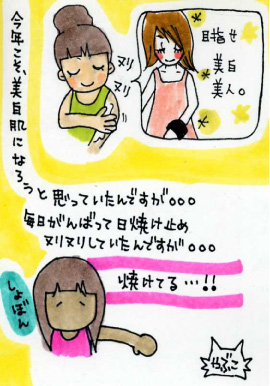 今年こそ、美白肌になろうっと
ヌリ
ヌリ
目指せ
美白
美人。
思っていたんですが。。。
毎日がんばって日焼け止め
ヌリヌリしていたんですが。。。
焼けてる…!!
しょぼん
やぶこ